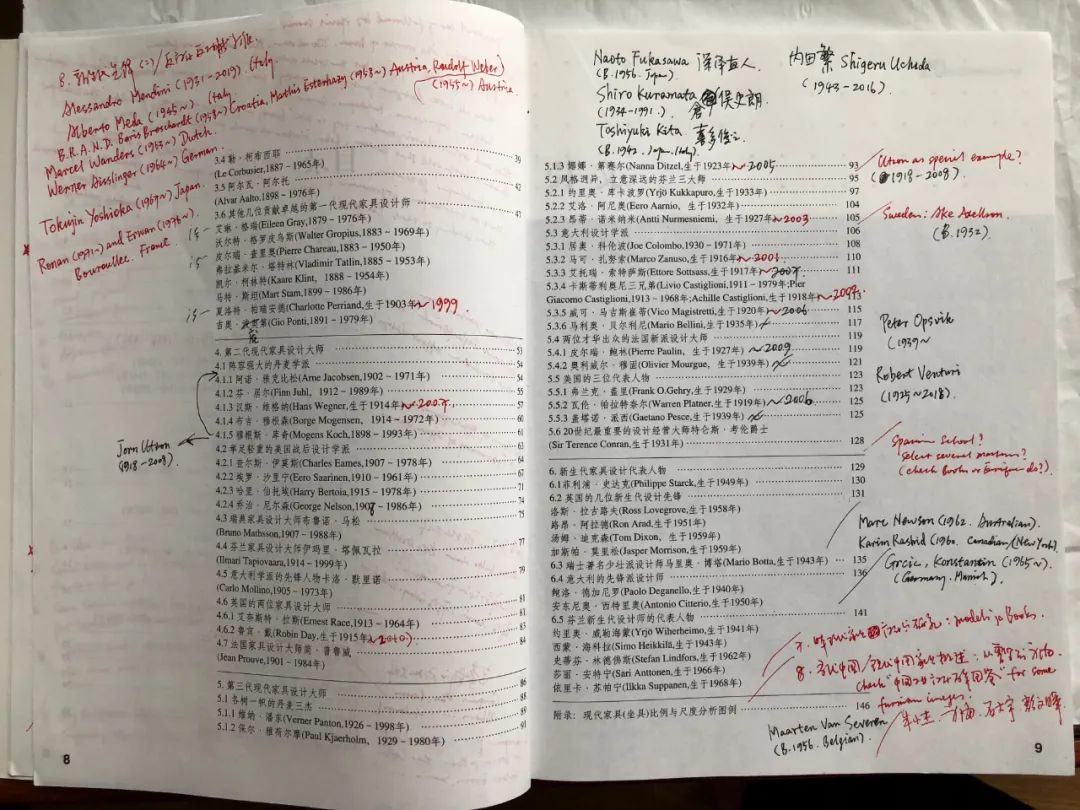 8.
Alessandro Mendini (1931-2019). Italy.
Alberto Meda (1945~). Italy
B.R.A.N.D. Boris Broschardt (1958~) Croatia, Mathis Esterhazy (1958~) Austria, Raudolf Weber)
(1955~) Austria.
Marcel Wanders (1963~) Dutch.
Werner Aisslinger (1964~) German.
Tokujin Yoshioka (1967~) Japan.
Ronan (1971~) and Erwan (1976~).
Bouroullec. France.
3.4 勒·柯布西耶 39
(Le Corbusier,1887-1965年)
3.5 阿尔瓦·阿尔托 42
(Alvar Aalto,1898-1976年)
3.6 其他几位贡献卓越的第一代现代家具设计师 47
艾琳·格瑞(Eileen Gray,1879~1976年)
沃尔特·格罗皮乌斯(Walter Gropius,1883~1969年)
皮尔瑞·查里奥(Pierre Chareau,1883~1950年)
弗拉基米尔·塔特林(Vladimir Tatlin,1885~1953年)
凯尔·柯林特(Kaare Klint, 1888-1954年)
马特·斯坦(Mart Stam,1899~1986年)
夏洛特·帕瑞安德(Charlotte Perriand,生于1903年 ~1999
吉奥·蓬蒂(Gio Ponti,1891-1979年)
4. 第二代现代家具设计大师 53
4.1 阵容强大的丹麦学派 54
4.1.1 阿诺·雅克比松(Arne Jacobsen,1902~1971年) 54
4.1.2 芬·居尔(Finn Juhl, 1912~1989年) 55
4.1.3 汉斯·维格纳(Hans Wegner,生于1914年 ~2007 57
4.1.4 布吉·穆根森(Borge Mogensen, 1914~1972年) 60
4.1.5 穆根斯·库奇(Mogens Koch,1898~1993年) 61
Jorn Utzon
(1918-2008).
4.2 举足轻重的美国战后设计学派 63
4.2.1 查尔斯·伊莫斯(Charles Eames,1907~1978年) 64
4.2.2 埃罗·沙里宁(Eero Saarinen,1910~1961年) 67
4.2.3 哈里·伯托埃(Harry Bertoia,1915~1978年) 71
4.2.4 乔治·尼尔森(George Nelson,1908~1986年) 74
4.3 瑞典家具设计大师布鲁诺·马松 75
(Bruno Mathsson,1907~1988年)
4.4 芬兰家具设计大师伊玛里·塔佩瓦拉 77
(Ilmari Tapiovaara,1914~1999年)
4.5 意大利学派的先锋人物卡洛·默里诺 79
(Carlo Mollino,1905~1973年)
4.6 英国的两位家具设计大师 81
4.6.1 艾奈斯特·拉斯(Ernest Race,1913~1964年) 81
4.6.2 鲁宾·戴(Robin Day,生于1915年 ~2010) 83
4.7 法国家具设计大师简·普鲁威 84
(Jean Prouve,1901~1984年)
5. 第三代现代家具设计大师 86
5.1 各树一帜的丹麦三杰 88
5.1.1 维纳·潘东(Verner Panton,1926~1998年) 89
5.1.2 保尔·雅荷尔摩(Paul Kjaerholm, 1929~1980年) 91
8
Naoto Fukasawa 深泽直人.
(B.1956. Japan).
Shiro Kuramata 倉俣史朗.
(1934-1991.)
Toshiyuki Kita. 喜多俊之
(B.1942. Japan. Italy).
内田繁 Shigeru Uchida
(1943-2016).
5.1.3 娜娜·第塞尔(Nanna Ditzel,生于1923年 ~2005 93
Utzon as special example?
(1918-2008).
5.2 风格迥异，立意深远的芬兰三大师 95
5.2.1 约里奥·库卡波罗(Yrjö Kukkapuro,生于1933年) 97
5.2.2 艾洛·阿尼奥(Eero Aarnio, 生于1932年) 104
5.2.3 昂蒂·诺米纳米(Antti Nurmesniemi, 生于1927年 ~2003 105
Sweden: Ake Axelsson.
(B.1932).
5.3 意大利设计学派 106
5.3.1 居奥·科伦波(Joe Colombo,1930~1971年) 108
5.3.2 马可·扎努索(Marco Zanuso,生于1916年 ~2001 110
5.3.3 艾托瑞·索特萨斯(Ettore Sottsass,生于1917年 ~2007 111
5.3.4 卡斯蒂利奥尼三兄弟(Livio Castiglioni,1911~1979年;Pier
Giacomo Castiglioni,1913~1968年;Achille Castiglioni,生于1918年 ~2002 113
5.3.5 威可·马吉斯崔蒂(Vico Magistretti,生于1920年 ~2006 115
5.3.6 马利奥·贝尔利尼(Mario Bellini,生于1935年) 117
5.4 两位才华出众的法国新派设计大师 119
5.4.1 皮尔瑞·鲍林(Pierre Paulin, 生于1927年) ~2009 119
5.4.2 奥利威尔·穆固(Olivier Mourgue, 生于1939年) 121
Peter Opsvik
(1939~
5.5 美国的三位代表人物 123
5.5.1 弗兰克·盖里(Frank O.Gehry,生于1929年) 123
5.5.2 瓦伦·帕拉特奈尔(Warren Platner,生于1919年 ~2006 125
5.5.3 盖塔诺·派西(Gaetano Pesce,生于1939年) 125
Robert Venturi
(1925~2018).
5.6 20世纪最重要的设计经营大师特伦斯·考伦爵士
(Sir Terence Conran,生于1931年) 128
Spanish School?
Select several masters?
(check Books or Enrique do?).
6. 新生代家具设计代表人物 129
6.1 菲利浦·史达克(Philippe Starck,生于1949年) 130
6.2 英国的几位新生代设计先锋 131
洛斯·拉古路夫(Ross Lovegrove,生于1958年)
路昂·阿拉德(Ron Arad,生于1951年)
汤姆·迪克森(Tom Dixon, 生于1959年)
加斯帕·莫里松(Jasper Morrison,生于1959年)
Marc Newson (1962. Australian).
Karim Rashid (1960. Canadian/(New York).
Grcic, Konstantin (1965~)
(Germany. Munich).
6.3 瑞士著名少壮派设计师马里奥·博塔(Mario Botta,生于1943年) 135
6.4 意大利的先锋派设计师 136
鲍洛·德加尼罗(Paolo Deganello,生于1940年)
安东尼奥·西特里奥(Antonio Citterio,生于1950年)
6.5 芬兰新生代设计师的代表人物 141
约里奥·威勒海蒙(Yrjö Wiherheimo,生于1941年)
西蒙·海科拉(Simo Heikkilä,生于1943年)
史蒂芬·林德佛斯(Stefan Lindfors,生于1962年)
莎丽·安特宁(Sari Anttonen,生于1966年)
依里卡·苏帕宁(Ilkka Suppanen,生于1968年)
models in Books.
8.
check "中国 for some
furniture images.
附录: 现代家具(坐具)比例与尺度分析图例 146
Maarten Van Severen
(B.1956. Belgian).
9